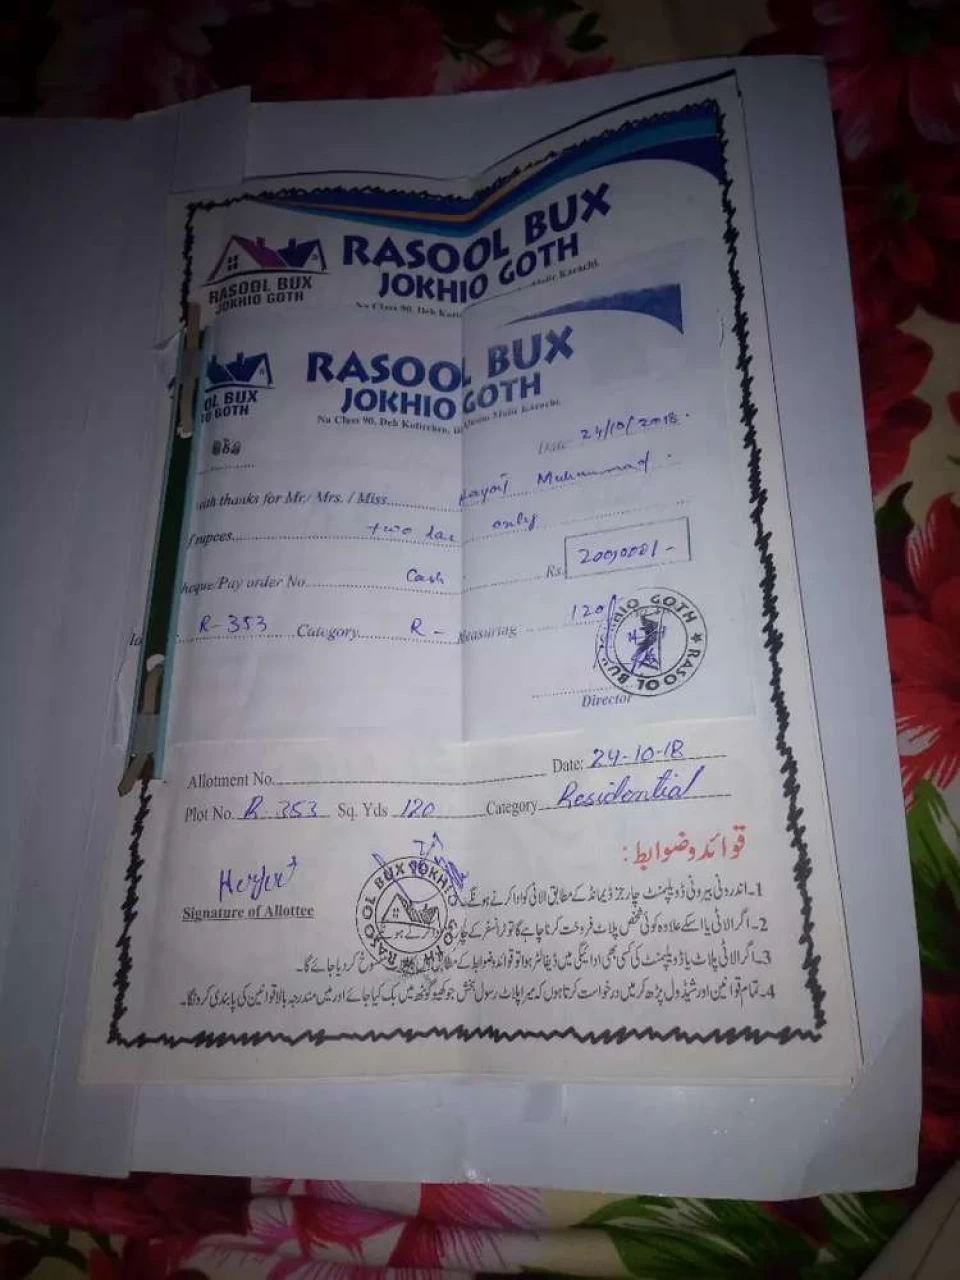 RASOOL BUX
JOKHIO GOTH
RASOOL BUX
JOKHIO GOTH
Na Class 90, Deh Malir Karachi.
RASOOL BUX
JOKHIO GOTH
OL BUX
GOTH
Na Class 90, Deh Malir Karachi.
Date 24/10/2018
with thanks for Mr./ Mrs. / Miss Muhammad
rupees two only
heque/Pay order No Cash Rs.
R-353 Category R - Measuring 120
JOKHIO GOTH ★ RASOOL BUX
Director
Allotment No. Date: 24-10-18
Plot No. R-353 Sq. Yds 120 Category Residential
قوائد وضوابط :
Signature of Allottee
RASOOL BUX JOKHIO GOTH
1۔ اندرونی بیرونی ڈویلپمنٹ چارجز ڈیمانڈ کے مطابق الاٹی کو ادا کرنے ہونگے
2۔ اگر الاٹی یا اسکے علاوہ کوئی شخص پلاٹ فروخت کرنا چاہے گا تو ٹرانسفر کے کرنے ہو
3۔ اگر الاٹی پلاٹ یا ڈویلپمنٹ کی کسی بھی ادائیگی میں ڈیفالٹر ہوا تو قوائد وضوابط کے کردیا جائے گا۔
4۔ تمام قوانین اور شیڈول پڑھ کر میں درخواست کرتا ہوں کہ میرا پلاٹ رسول بخش جوکھیو گوٹھ میں بک کیا جائے اور میں مندرجہ بالا قوانین کی پابندی کرونگا۔